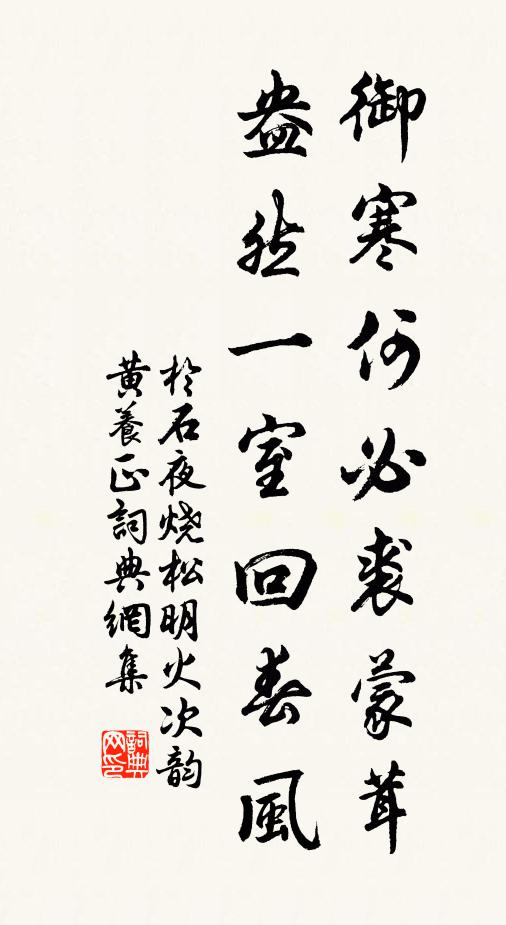 御寒何必裘蒙茸
盎然一室回春風
於石夜燒松明火次韵
黃養正詞典網集
詞典网印